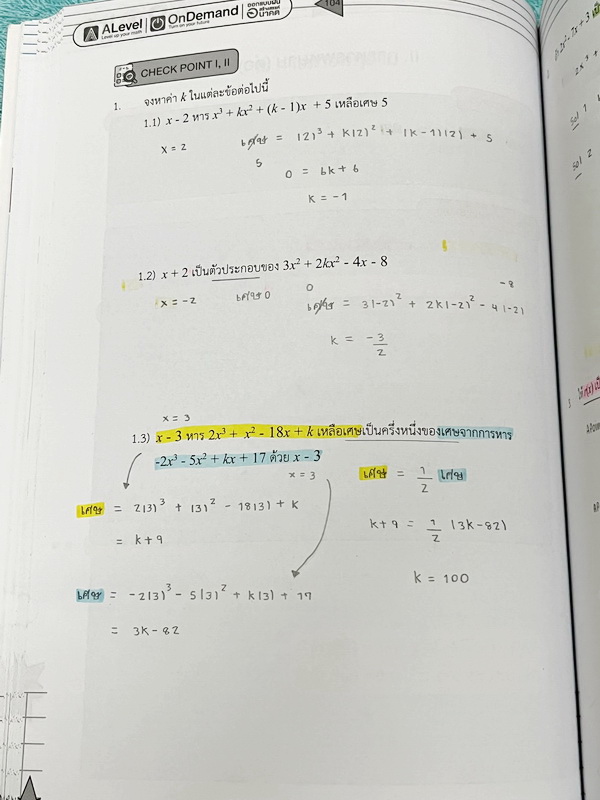 ALevel
Level up your math
OnDemand
Turn on your future
ออกแบบฝัน
สร้างสรรค์
อนาคต
104
CHECK POINT I, II
1. จงหาค่า k ในแต่ละข้อต่อไปนี้
1.1) x - 2 หาร x³ + kx² + (k - 1)x + 5 เหลือเศษ 5
x = 2 เศษ = (2)³ + k(2)² + (k-1)(2) + 5
5
0 = 6k + 6
k = -1
1.2) x + 2 เป็นตัวประกอบของ 3x² + 2kx² - 4x - 8
x = -2 เศษ 0
0 -8
เศษ = 3(-2)² + 2k(-2)² - 4(-2)
k = -3/2
x = 3
1.3) x - 3 หาร 2x³ + x² - 18x + k เหลือเศษเป็นครึ่งหนึ่งของเศษจากการหาร
-2x³ - 5x² + kx + 17 ด้วย x - 3
x = 3
เศษ = 1/2 เศษ
เศษ = 2(3)³ + (3)² - 18(3) + k
k + 9 = 1/2 (3k - 82)
= k + 9
k = 100
เศษ = -2(3)³ - 5(3)² + k(3) + 17
= 3k - 82